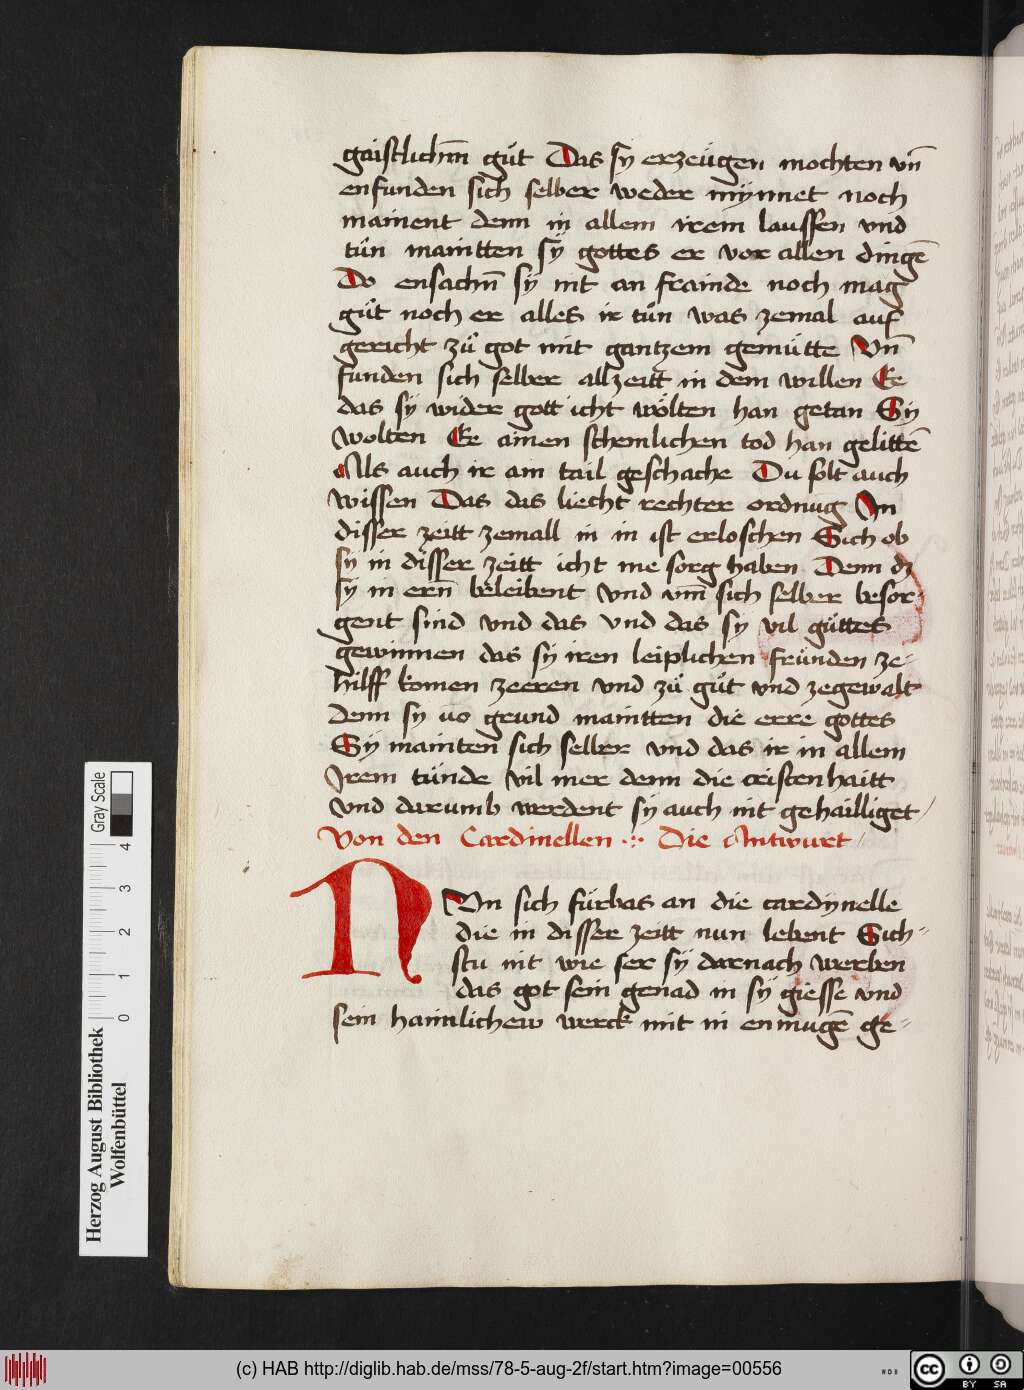 gaistlichm̄ gůt Das sy erzeügen mochten vn̄
enfunden sich selber weder mÿnnet noch
mainent denn in allem irem laussen vnd
tůn maintten sÿ gottes er vor allen dingē
Do ensachn̄ sÿ nit an frainde noch mag
gůt noch er alles ir tůn was zemal auf
gericht zů got mit gantzem gemütte Vn̄
funden sich selber allzeitt in dem willen Ee
das sÿ wider gott icht wölten han getan Sÿ
wolten Ee ainen schemlichen tod han gelittē
Als auch ir ain tail geschache Du solt auch
wissen Das das liecht rechter ordnūg In
disser zeitt zemall in in ist erloschen Sich ob
sÿ in disser zeitt icht me sorg haben Denn dz
sÿ in ern̄ beleibent vnd vm̄ sich selber besor-
gent sind vnd das vnd das sÿ vil güttes
gewinnen das sÿ iren leiplichen fründen ze-
hilff komen zeeren vnd zů gůt vnd zegewalt
denn sÿ vo grund maintten die erre gottes
Sÿ mainten sich selber vnd das ir in allem
Irem tünde vil mer denn die cristenhaitt
vnd darumb werdent sÿ auch nit gehailliget
Von den Cardinellen Die Antwurt
NVn sich fürbas an die cardÿnelle
die in disser zeitt nun lebent Sich-
stu nit wie ser sÿ darnach werben
das got sein genad in sÿ giesse vnd
sein haimlichew werck mit in enmugē ge-
Herzog August Bibliothek
Wolfenbüttel
Gray Scale
0 1 2 3 4
(c) HAB http://diglib.hab.de/mss/78-5-aug-2f/start.htm?image=00556
WDB
cc BY SA